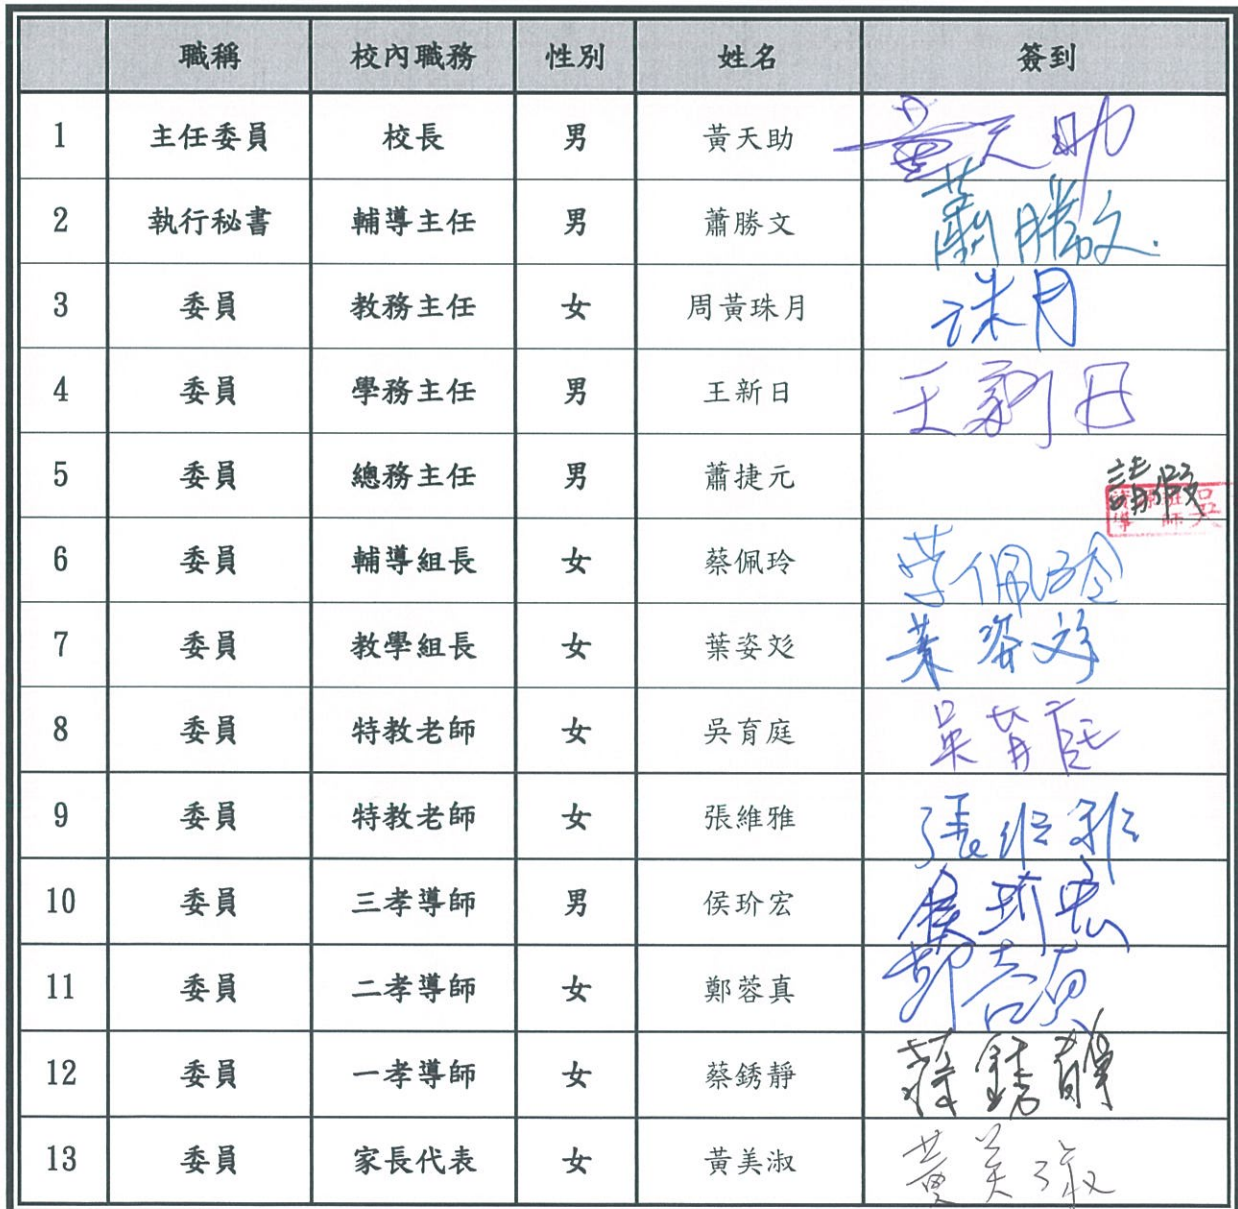 職稱 校內職務 性別 姓名 簽到
1 主任委員 校長 男 黃天助 黃天助
2 執行秘書 輔導主任 男 蕭勝文 蕭勝文
3 委員 教務主任 女 周黃珠月 珠月
4 委員 學務主任 男 王新日 王新日
5 委員 總務主任 男 蕭捷元 請假
6 委員 輔導組長 女 蔡佩玲 蔡佩玲
7 委員 教學組長 女 葉姿彣 葉姿彣
8 委員 特教老師 女 吳育庭 吳育庭
9 委員 特教老師 女 張維雅 張維雅
10 委員 三孝導師 男 侯玠宏 侯玠宏
11 委員 二孝導師 女 鄭蓉真
12 委員 一孝導師 女 蔡銹靜 蔡銹靜
13 委員 家長代表 女 黃美淑 黃美淑